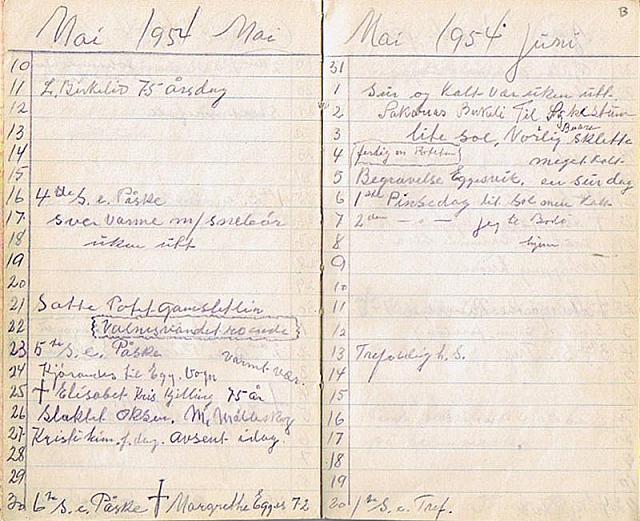 Mai 1954 Mai
10
11 L. Birkelid 75 årsdag
12
13
14
15
16 4de S. e. Påske
17 svær varme m/
18 uken utt
19
20
21 Satte Potet
22
23 5te S. e. Påske
varmt vær.
24 til Egg. Vogn
25 † Elisabet Kris. 75 år
26 Slaktet Oksen.
27 Kristi him. f. dag. Avsent idag.
28
29
30 6te S. e. Påske † Margrethe Egges 72
B
Mai 1954 Juni
31
1 Sur og kalt var uken utt
2 Birkeli Til
3 lite sol, Vårlig sklette
Baare
4 ferdig m Poteten
meget kalt
5 Begravelse Eggesvik, en sur dag
6 1ste Pinsedag lit sol men kalt
7 2den — " — jeg te Bodø
8 hjem
9
10
11
12
13 Trefoldigh. S.
14
15
16
17
18
19
20 1ste S. e. Tref.